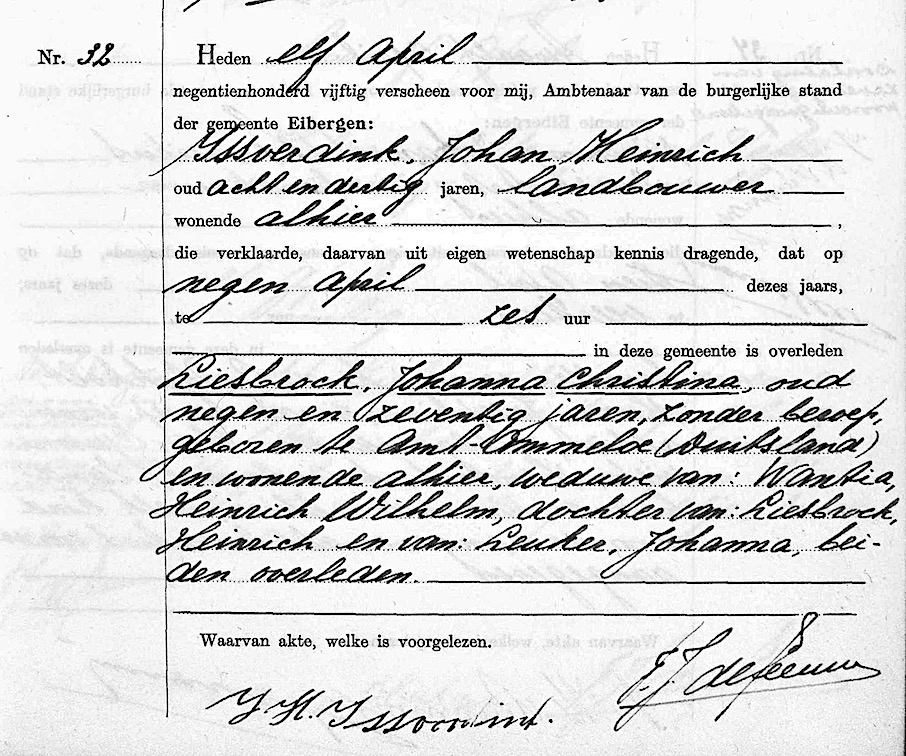 Nr. 32
Heden elf April
negentienhonderd vijftig verscheen voor mij, Ambtenaar van de burgerlijke stand
der gemeente Eibergen:
Ysverdink, Johan Heinrich
oud acht en dertig jaren, landbouwer
wonende alhier ,
die verklaarde, daarvan uit eigen wetenschap kennis dragende, dat op
negen April dezes jaars,
te zes uur
in deze gemeente is overleden
Liesbrock, Johanna Christina, oud
negen en zeventig jaren, zonder beroep,
geboren te Amt-Ammeloe (Duitsland)
en wonende alhier, weduwe van: Wantia,
Heinrich Wilhelm, dochter van: Liesbrock,
Heinrich en van: Leuker, Johanna, bei-
den overleden.
Waarvan akte, welke is voorgelezen.